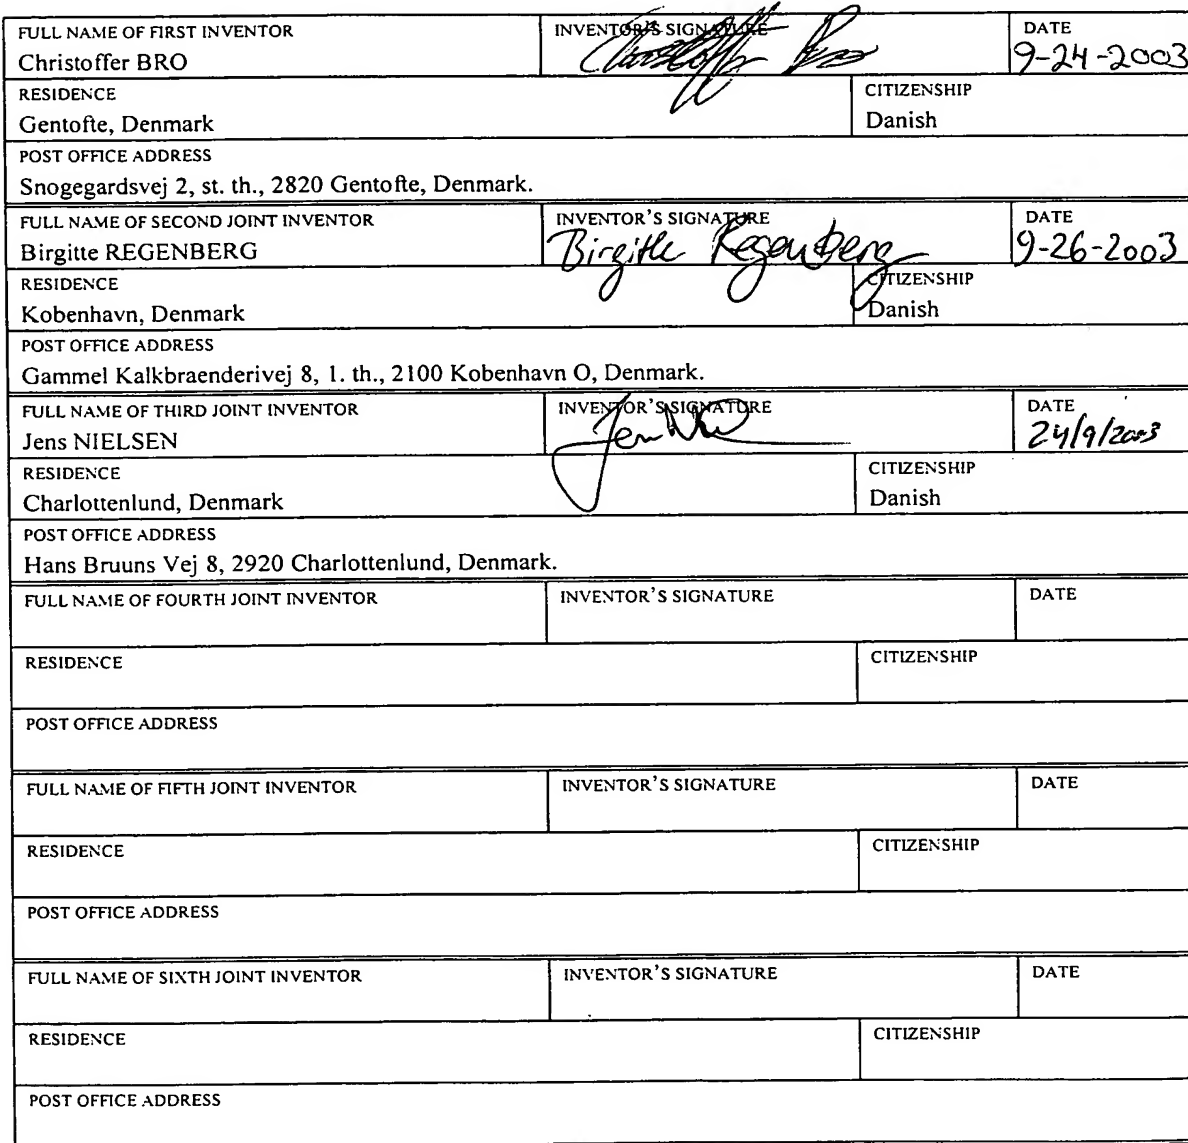 FULL NAME OF FIRST INVENTOR INVENTOR'S SIGNATURE DATE
Christoffer BRO Christoffer Bro 9-24-2003
RESIDENCE CITIZENSHIP
Gentofte, Denmark Danish
POST OFFICE ADDRESS
Snogegardsvej 2, st. th., 2820 Gentofte, Denmark.
FULL NAME OF SECOND JOINT INVENTOR INVENTOR'S SIGNATURE DATE
Birgitte REGENBERG Birgitte Regenberg 9-26-2003
RESIDENCE CITIZENSHIP
Kobenhavn, Denmark Danish
POST OFFICE ADDRESS
Gammel Kalkbraenderivej 8, 1. th., 2100 Kobenhavn O, Denmark.
FULL NAME OF THIRD JOINT INVENTOR INVENTOR'S SIGNATURE DATE
Jens NIELSEN 24/9/2003
RESIDENCE CITIZENSHIP
Charlottenlund, Denmark Danish
POST OFFICE ADDRESS
Hans Bruuns Vej 8, 2920 Charlottenlund, Denmark.
FULL NAME OF FOURTH JOINT INVENTOR INVENTOR'S SIGNATURE DATE
RESIDENCE CITIZENSHIP
POST OFFICE ADDRESS
FULL NAME OF FIFTH JOINT INVENTOR INVENTOR'S SIGNATURE DATE
RESIDENCE CITIZENSHIP
POST OFFICE ADDRESS
FULL NAME OF SIXTH JOINT INVENTOR INVENTOR'S SIGNATURE DATE
RESIDENCE CITIZENSHIP
POST OFFICE ADDRESS